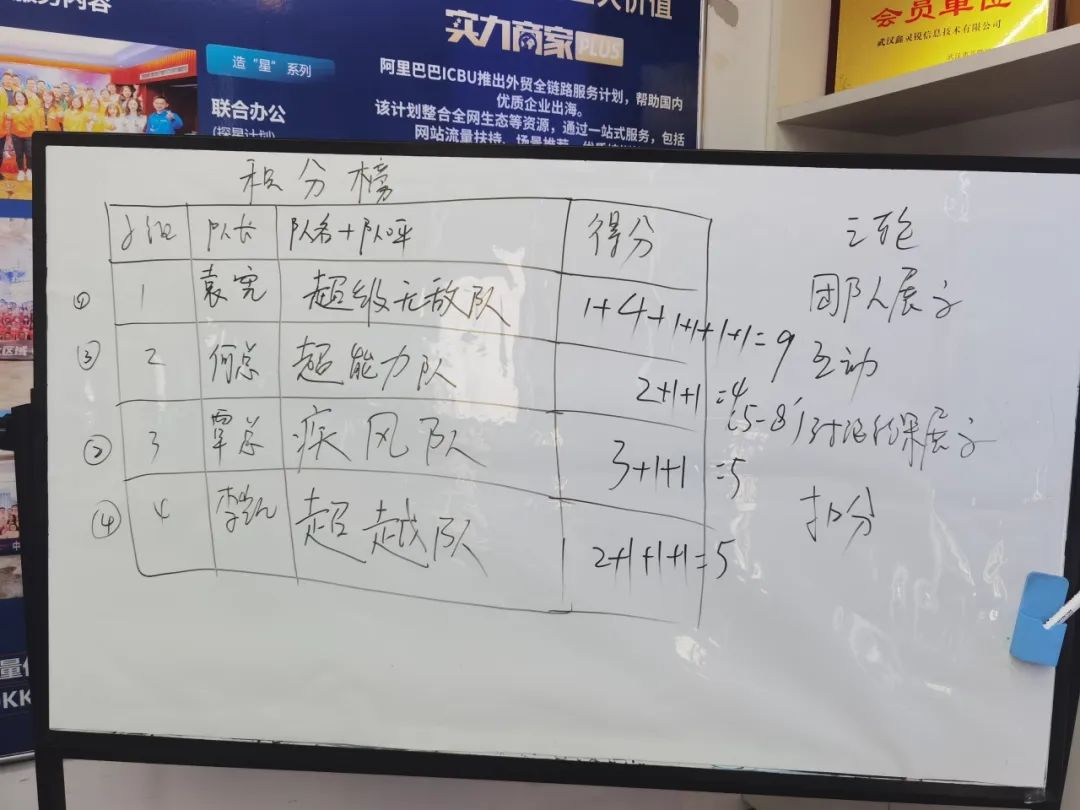 服务内容
大价值
实力商家PLUS
造“星”系列
联合办公
(探星计划)
阿里巴巴ICBU推出外贸全链路服务计划，帮助国内
优质企业出海。
该计划整合全网生态等资源，通过一站式服务，包括
网站流量扶持、场景推荐、优质
会员单位
武汉鑫灵锐信息技术有限公司
积分榜
小组 队长 队名+队呼 得分
① 1 袁宪 超级无敌队 1+4+1+1+1+1=9
③ 2 何总 超能力队 2+1+1=4
② 3 覃总 疾风队 3+1+1=5
④ 4 李凯 超越队 2+1+1+1=5
三轮
团队展示
互动
(5-8')讨论结果展示
扣分
区域
量
OKK